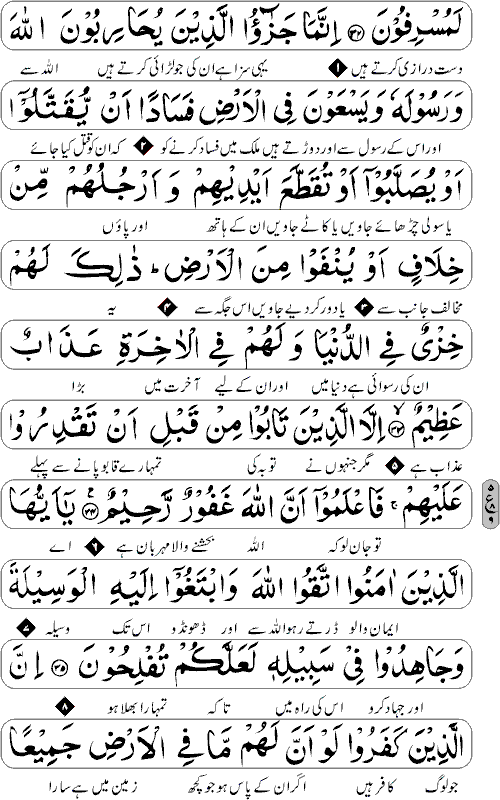 لَمُسْرِفُوْنَ ﴿۳۲﴾ اِنَّمَا جَزٰٓؤُا الَّذِيْنَ يُحَارِبُوْنَ اللّٰهَ
دست درازی کرتے ہیں ۱ یہی سزا ہے ان کی جو لڑائی کرتے ہیں اللہ سے
وَرَسُوْلَهٗ وَيَسْعَوْنَ فِى الْاَرْضِ فَسَادًا اَنْ يُّقَتَّلُوْٓا
اور اس کے رسول سے اور دوڑتے ہیں ملک میں فساد کرنے کو ۲ کہ ان کو قتل کیا جائے
اَوْ يُصَلَّبُوْٓا اَوْ تُقَطَّعَ اَيْدِيْهِمْ وَ اَرْجُلُهُمْ مِّنْ
یا سولی چڑھائے جاویں یا کاٹے جاویں ان کے ہاتھ اور پاؤں
خِلَافٍ اَوْ يُنْفَوْا مِنَ الْاَرْضِ ؕ ذٰلِكَ لَهُمْ
مخالف جانب سے ۳ یا دور کر دیے جاویں اس جگہ سے ۴ یہ
خِزْىٌ فِى الدُّنْيَا وَ لَهُمْ فِى الْاٰخِرَةِ عَذَابٌ
ان کی رسوائی ہے دنیا میں اور ان کے لیے آخرت میں بڑا
عَظِيْمٌ ﴿۳۳﴾ اِلَّا الَّذِيْنَ تَابُوْا مِنْ قَبْلِ اَنْ تَقْدِرُوْا
عذاب ہے ۵ مگر جنہوں نے توبہ کی تمہارے قابو پانے سے پہلے
عَلَيْهِمْ ۚ فَاعْلَمُوْٓا اَنَّ اللّٰهَ غَفُوْرٌ رَّحِيْمٌ ﴿۳۴﴾ يٰٓاَيُّهَا
تو جان لو کہ اللہ بخشنے والا مہربان ہے ۶ اے
الَّذِيْنَ اٰمَنُوا اتَّقُوا اللّٰهَ وَابْتَغُوْٓا اِلَيْهِ الْوَسِيْلَةَ
ایمان والو ڈرتے رہو اللہ سے اور ڈھونڈو اس تک وسیلہ ۷
وَجَاهِدُوْا فِىْ سَبِيْلِهٖ لَعَلَّكُمْ تُفْلِحُوْنَ ﴿۳۵﴾ اِنَّ
اور جہاد کرو اس کی راہ میں تاکہ تمہارا بھلا ہو ۸
الَّذِيْنَ كَفَرُوْا لَوْ اَنَّ لَهُمْ مَّا فِى الْاَرْضِ جَمِيْعًا
جو لوگ کافر ہیں اگر ان کے پاس ہو جو کچھ زمین میں ہے سارا